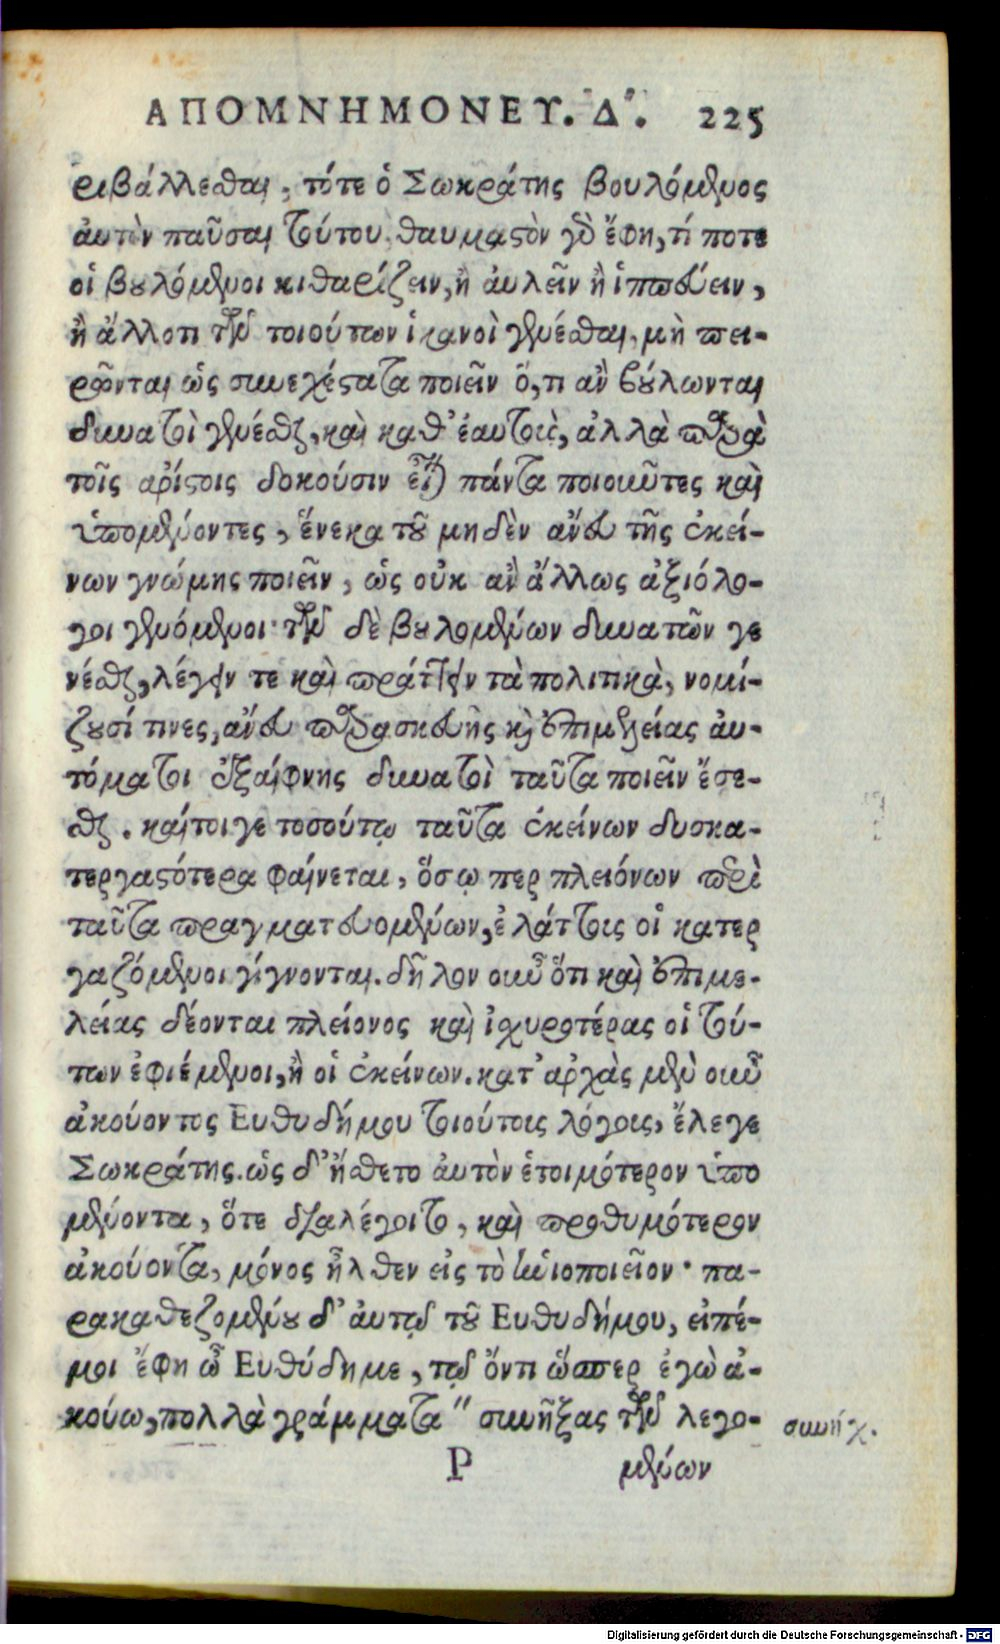 ΑΠΟΜΝΗΜΟΝΕΥ. Δ". 225
ριβάλλεσθαι, τότε ὁ Σωκράτης βουλόμενος
ἀυτὸν παῦσαι τούτου. θαυμαστὸν γὸ ἔφη, τί ποτε
οἱ βουλόμενοι κιθαρίζειν, ἢ ἀυλεῖν ἢ ἱππεύειν,
ἢ ἄλλοτι τῶν τοιούτων ἱκανοὶ γενέσθαι, μὴ πει-
ρῶνται ὡς συνεχέστατα ποιεῖν ὅ, τι ἂν βούλωνται
δυνατοὶ γενέσθαι, καὶ καθ' ἑαυτοὺς, ἀλλὰ παρὰ
τοῖς ἀρίστοις δοκούσιν εἶναι πάντα ποιοῦντες καὶ
ὑπομένοντες, ἕνεκα τοῦ μηδὲν ἄνευ τῆς ἐκεί-
νων γνώμης ποιεῖν, ὡς οὐκ ἂν ἄλλως ἀξιόλο-
γοι γενόμενοι· τῶν δὲ βουλομένων δυνατῶν γε
νέσθαι, λέγειν τε καὶ πράττειν τὰ πολιτικὰ, νομί-
ζουσί τινες, ἄνευ παρασκευῆς καὶ ἐπιμελείας ἀυ-
τόματοι ἐξαίφνης δυνατοὶ ταῦτα ποιεῖν ἔσε-
σθαι. καίτοιγε τοσούτῳ ταῦτα ἐκείνων δυσκα-
τεργαστότερα φαίνεται, ὅσῳ περ πλειόνων περὶ
ταῦτα πραγματευομένων, ἐλάττοις οἱ κατερ
γαζόμενοι γίγνονται. δῆλον οὖν ὅτι καὶ ἐπιμε-
λείας δέονται πλείονος καὶ ἰχυροτέρας οἱ τού-
των ἐφιέμενοι, ἢ οἱ ἐκείνων. κατ' ἀρχὰς μὲν οὖν
ἀκούοντος Ευθυδήμου τοιούτοις λόγοις, ἔλεγε
Σωκράτης. ὡς δ' ἤσθετο ἀυτὸν ἑτοιμότερον ὑπο
μένοντα, ὅτε διαλέγοιτο, καὶ προθυμότερον
ἀκούοντα, μόνος ἦλθεν εἰς τὸ ἡνιοποιεῖον· πα-
ρακαθεζομένου δ' ἀυτῷ τοῦ Ευθυδήμου, εἰπέ-
μοι ἔφη ὦ Ευθύδημε, τῷ ὄντι ὥσπερ ἐγὼ ἀ-
κούω, πολλὰ γράμματα" συνῆξας τῶν λεγο- συνήχ.
P μένων
Digitalisierung gefördert durch die Deutsche Forschungsgemeinschaft - DFG